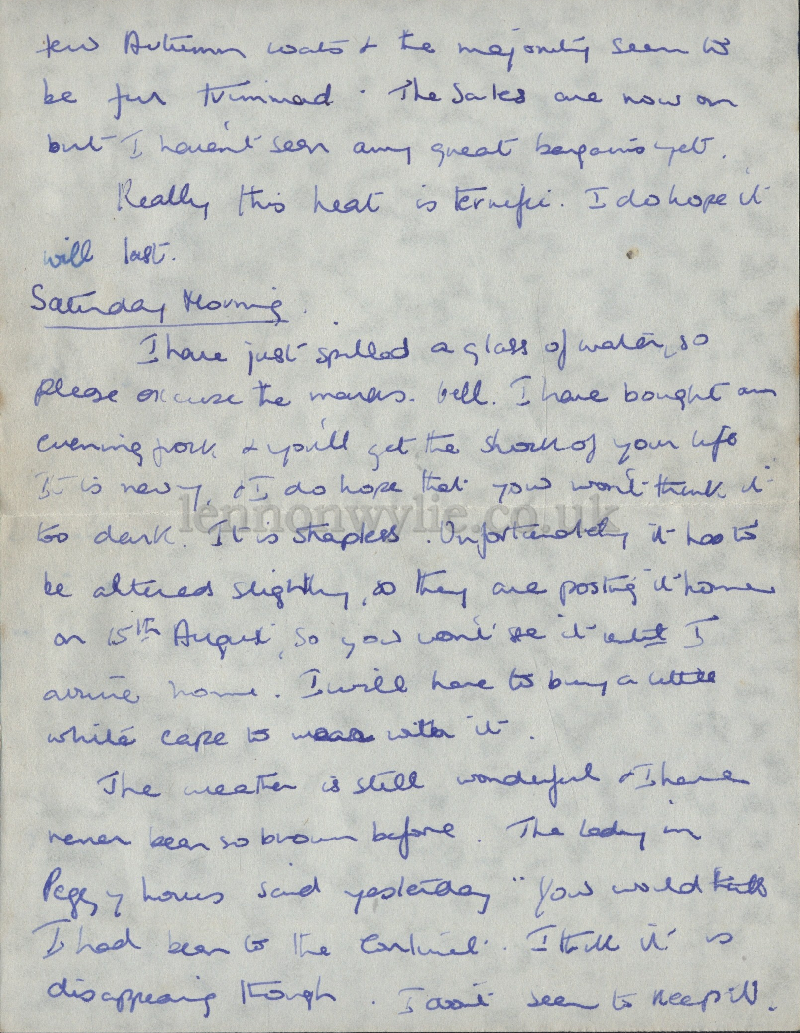 few Autumn coats & the majority seem to
be fur trimmed. The Sales are now on
but I haven't seen any great bargains yet.
Really this heat is terrific. I do hope it
will last.
Saturday Morning.
I have just spilled a glass of water, so
please excuse the marks. Well. I have bought an
evening frock & you'll get the shock of your life
It is navy, & I do hope that you won't think it
too dark. It is strapless. Unfortunately it has to
lennonwylie.co.uk
be altered slightly, so they are posting it home
on 15th August, so you won't see it until I
arrive home. I will have to buy a little
white cape to wear with it.
The weather is still wonderful & I have
never been so brown before. The lady in
Peggy said yesterday "You would think
I had been to the Continent. I think it is
disappearing though. I don't seem to keep it.